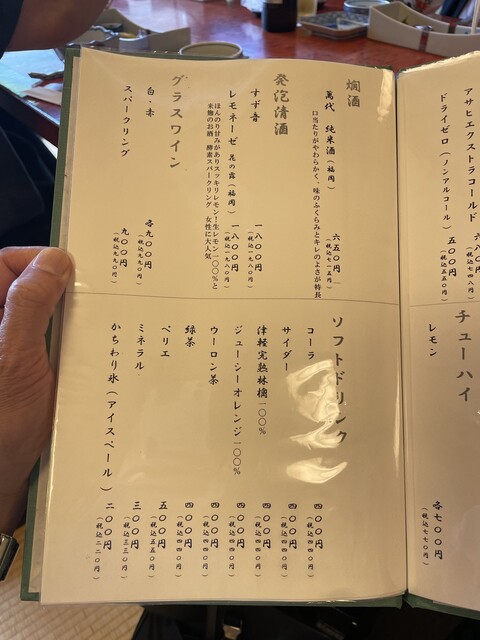 アサヒエクストラコールド
ドライゼロ(ノンアルコール)
五〇〇円
(税込五五〇円)
チューハイ
レモン
各七〇〇円
(税込七七〇円)
燗酒
萬代 純米酒(福岡)
六五〇円
(税込七一五円)
口当たりがやわらかく、味のふくらみとキレのよさが特長
発泡清酒
すず音
一八〇〇円
(税込一九八〇円)
レモネーゼ 花の露(福岡)
一八〇〇円
(税込一九八〇円)
ほんのり甘みがありスッキリレモン!生レモン一〇〇%と
米麹のお酒 酵素スパークリング 女性に大人気
グラスワイン
白・赤
各九〇〇円
(税込九九〇円)
スパークリング
九〇〇円
(税込九九〇円)
ソフトドリンク
コーラ
四〇〇円
(税込四四〇円)
サイダー
四〇〇円
(税込四四〇円)
津軽完熟林檎一〇〇%
四〇〇円
(税込四四〇円)
ジューシーオレンジ一〇〇%
四〇〇円
(税込四四〇円)
ウーロン茶
四〇〇円
(税込四四〇円)
緑茶
四〇〇円
(税込四四〇円)
ペリエ
五〇〇円
(税込五五〇円)
ミネラル
三〇〇円
(税込三三〇円)
かちわり氷(アイスペール)
二〇〇円
(税込二二〇円)